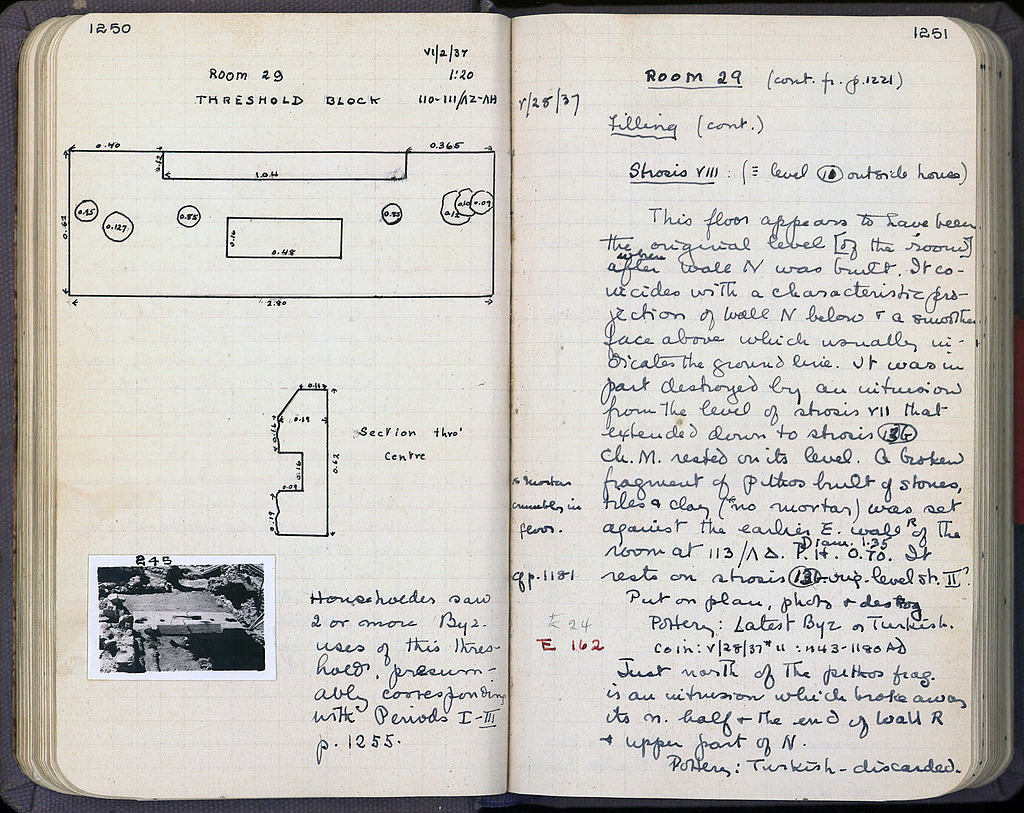 1250
VI/2/37
ROOM 29
1:20
THRESHOLD BLOCK 110-111/ΛZ-ΛH
0.40
0.365
0.12
1.04
0.62
0.127
0.85
0.16
0.48
0.85
0.12
0.10
0.09
2.80
0.113
0.19
0.16
0.62
0.16
0.09
0.19
Section thro'
Centre
245
Householder saw
2 or more Byz.
uses of this thres-
hold, presum-
ably corresponding
with Periods I-III
p. 1255.
1251
ROOM 29 (cont. fr. p.1221)
V/28/37
Filling (cont.)
Strosis VIII : (≡ level 10 outside house)
This floor appears to have been
the original level [of the room]
when
after wall N was built. It co-
incides with a characteristic pro-
jection of wall N below & a smoother
face above which usually in-
dicates the ground line. It was in
part destroyed by an intrusion
from the level of strosis VII that
extended down to strosis 13G
Ch. M. rested on its level. A broken
* mortar
crumbles in
floor.
fragment of pithos built of stones,
tiles & clay (*no mortar) was set
against the earlier E. wall R of the
Diam. 1.35
room at 113/ΛΔ. P.H. 0.70. It
cf p. 1181
rests on strosis level str. II.
Put on plan, photo & destroy
E 24
Pottery: Latest Byz or Turkish.
E 162
Coin: V/28/37 # 11 : 1143-1180 AD
Just north of the pithos frag.
is an intrusion which broke away
its n. half & the end of wall R
& upper part of N.
Pottery: Turkish - discarded.